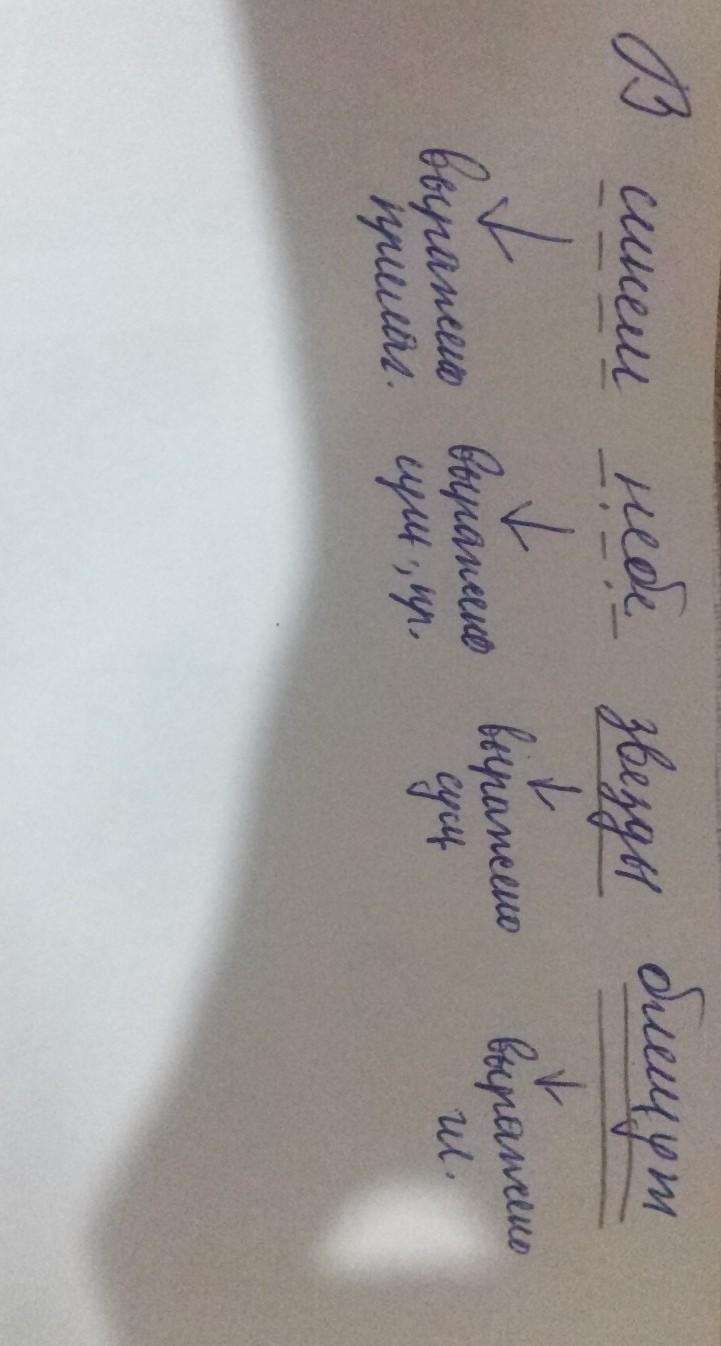 В синем небе звезды блещут
выражено выражено выражено выражено
прилаг. сущ., пр. сущ гл.